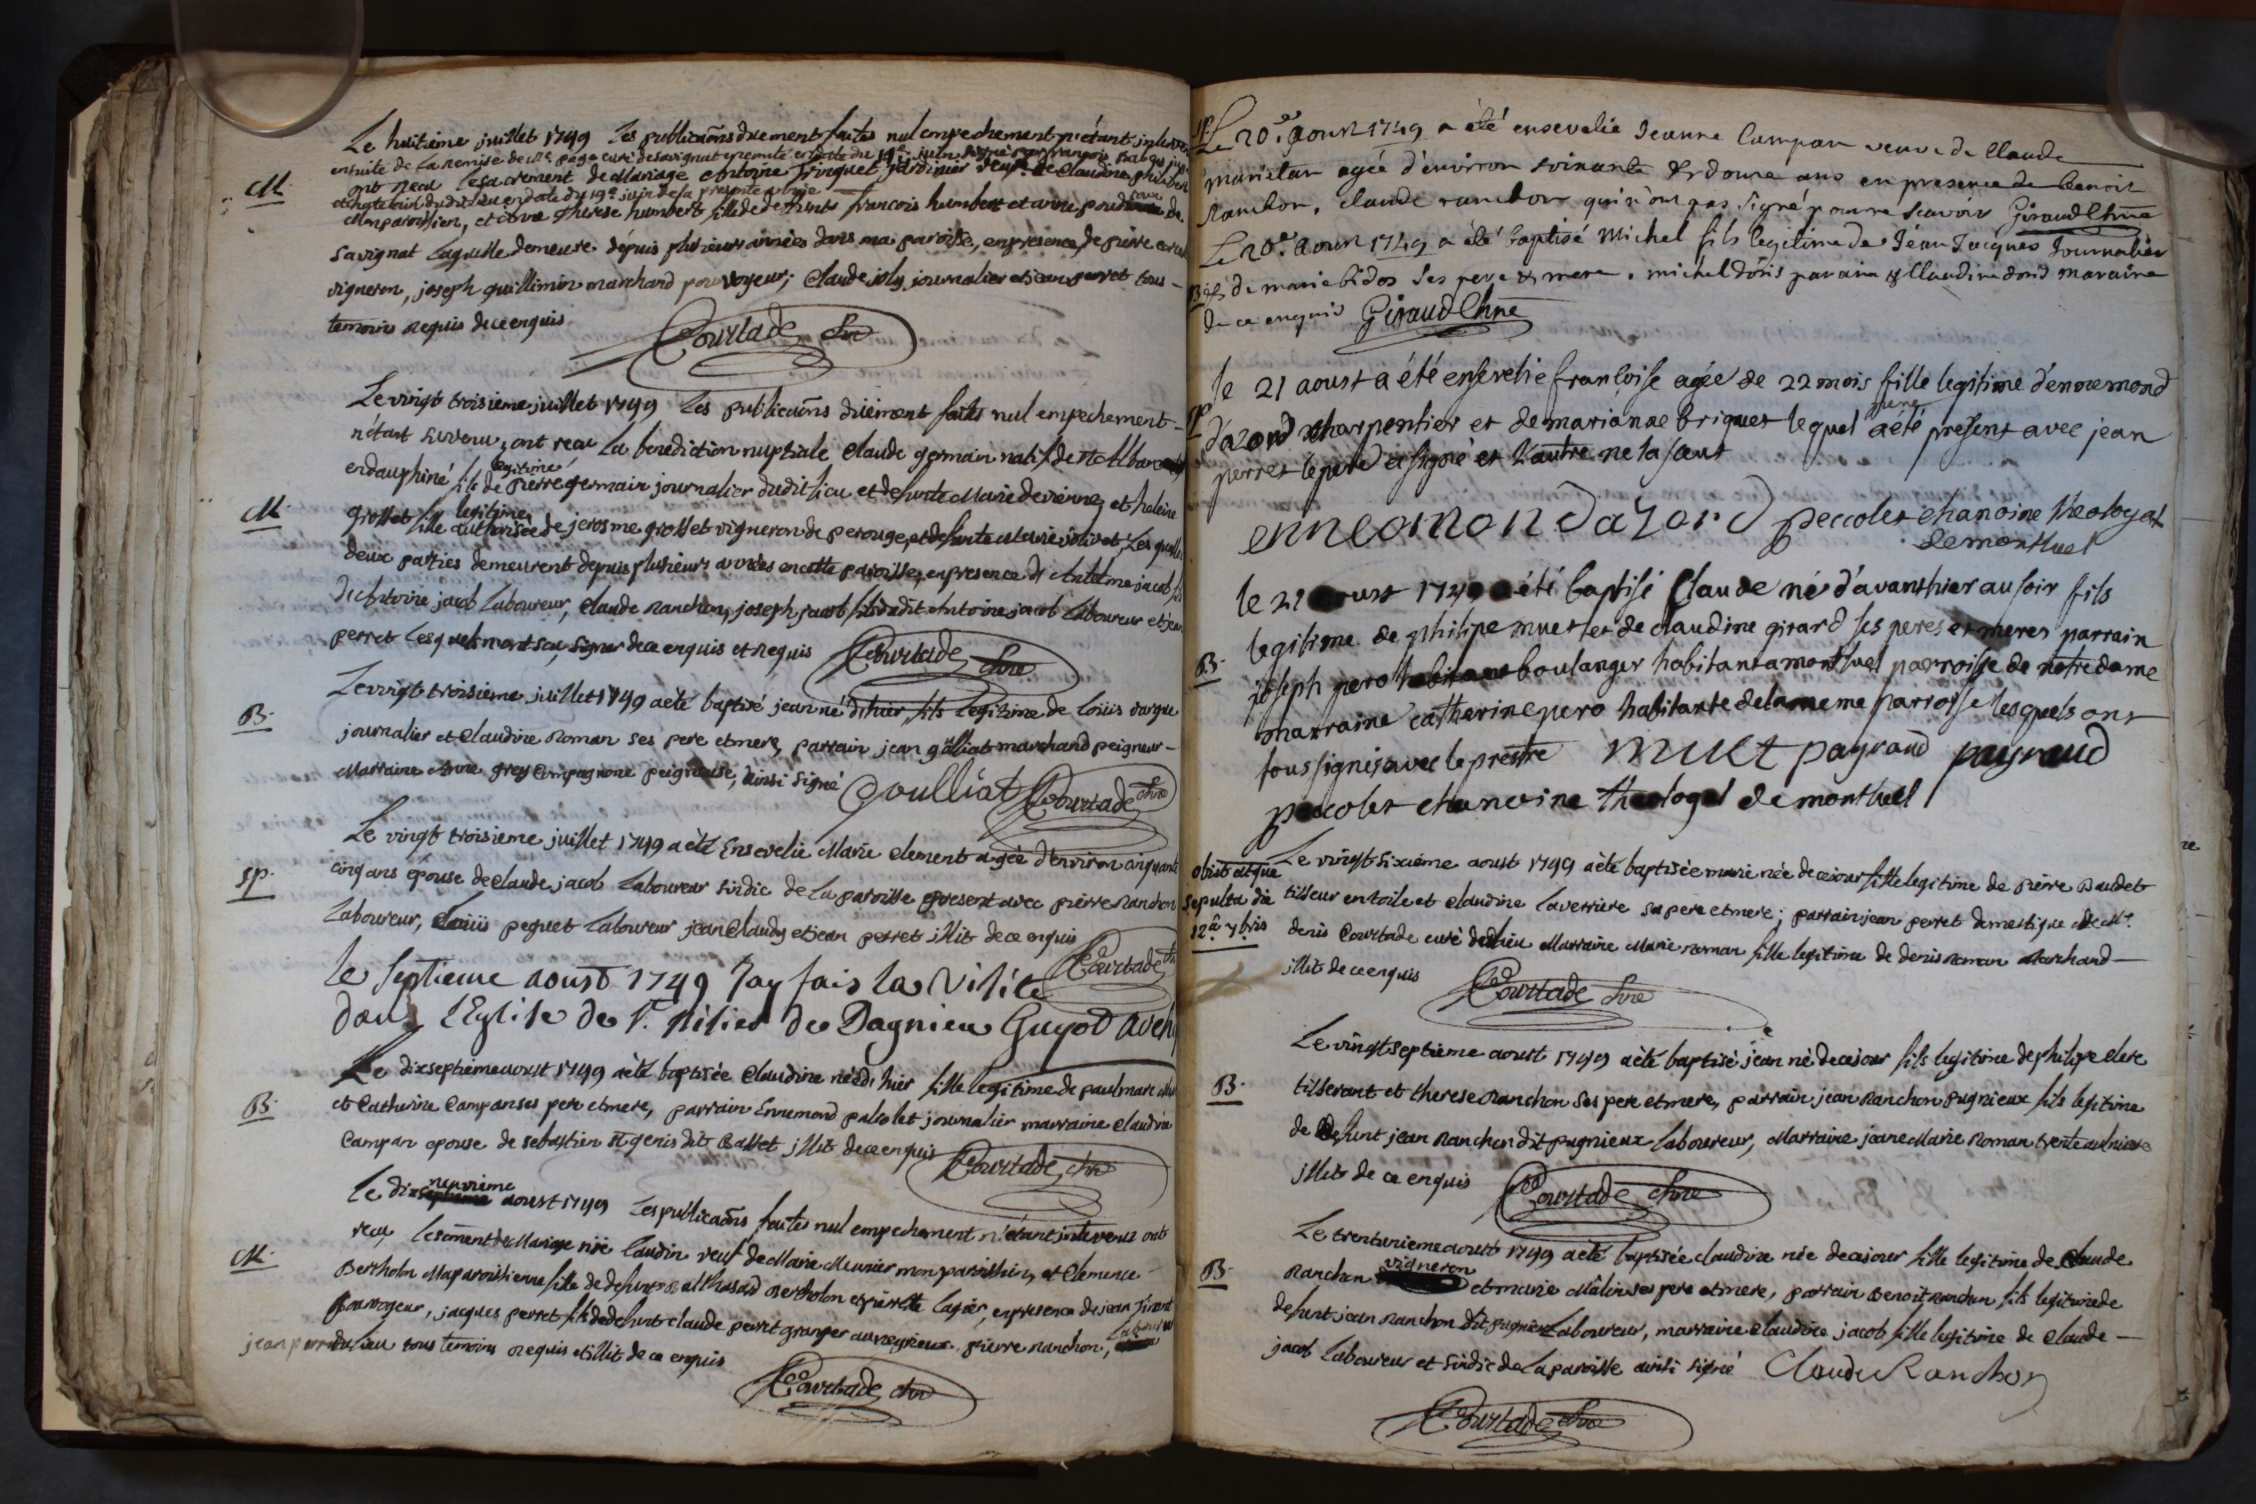 Le huitieme juillet 1749 Les publicaõns duement faites nul empechement n'etant interven
ensuite de la remise de
M.
ont recu le sacrement de Mariage Antoine Friquet jardinier veuf de Claudine philiber
Mon paroissien, et Anne Therese humbert fille de defunts francois humbert et anne
Savignat Laquelle demeure depuis plusieurs années dans ma paroisse, en presence de pierre
vigneron, joseph guillimin marchand pourvoyeur; Claude joly journalier et jean perret tous
temoins requis de ce enquis
Courtade Chne
Le vingt troisieme juillet 1749 Les publicaõns düement faites nul empechement
n'étant survenu, ont recu La benediction nuptiale Claude germain natif de st Alban
legitime
en dauphiné fils de pierre germain journalier dudit lieu et defunte Marie de vienne, et heleine
M.
legitime
grosset fille authorisée de jerosme grosset vigneron de perouge, et defunte Marie violivet, Les quelles
deux parties demeurent depuis plusieurs années en cette paroisse, en presence de Antelme jacob fils
d'Antoine jacob Laboureur, Claude Ranchon, joseph jacob fils dudit Antoine jacob Laboureur et jean
perret Lesquels n'ont scu signer de ce enquis et requis
Courtade Chne
Le vingt troisieme juillet 1749 a eté baptisé jean né d'hier fils Legitime de Loüis dargue
B.
journalier et Claudine Roman ses pere et mere, parrain jean galliat marchand peigneur
Marraine Anne grey Compagnone peigneuse, ainsi signé
Goulliat Courtade Chne
Le vingt troisieme juillet 1749 a eté Ensevelie Marie Clement agée d'environ cinquante
Sp.
cinq ans épouse de Claude jacob Laboureur sindic de La paroisse present avec pierre Ranchon
Laboureur, Loüis peguet Laboureur jean Claudy et jean perret illit de ce enquis
Courtade Ch
le Septieme aoust 1749 Jay fais la Visite
dans lEglise de St. de Dagnieu Guyot
Le dixseptieme aoust 1749 a eté baptisée Claudine née d'hier fille Legitime de paul marc
B.
et Catherine Campan ses pere et mere, parrain Ennemond palolet journalier marraine Claudine
Campan epouse de sebastien st genis dit Basset illit de ce enquis
Courtade Chne
neuvieme
Le dix aoust 1749 Les publicaõns faites nul empechement n'étant intervenu ont
M.
recu Le sacment de Mariage Claudin veuf de Marie Meunier mon paroissien, et Clemence
Bertholon Ma paroissienne fille de defunt Balthasard Bertholon et pierrette Lagier, en presence de jean
pourvoyeur, jacques perret fils de defunt claude perret granger pierre Ranchon, Laboureur
jean perret dudit lieu tous temoins requis et illit de ce enquis
Courtade Chne
SP. Le 20.e aoust 1749 a été ensevelie Jeanne Campan veuve de Claude
agée d'environ soixante & douze ans en presence de Benoit
Ranchon, Claude ranchon qui n'ont pas signé pour ne scavoir Giraud Chne
Le 20.e aoust 1749 a été baptisé Michel fils legitime de Jean Jacques Journalier
B. & de marie bidos ses pere & mere. michel doris parain & Claudine dond maraine
de ce enquis Giraud Chne
le 21 aoust a été ensevelie francoise agée de 22 mois fille legitime d'ennemond
SP
pere
d'azord charpentier et de marianne briquet lequel a été present avec jean
perret le pere a signé et l'autre ne la sceut
enneonon Dazord peccolet chanoine theologal
de montluel
le 21 aoust 1749 a été baptisé Claude né d'avanthier au soir fils
legitime de philipe muet et de claudine girard ses peres et meres parrain
B.
joseph pero boulanger habitant a montluel parroisse de notre dame
marraine catherine pero habitante de la meme parroisse lesquels ont
tous signés avec le prestre MUET payraud payraud
peccolet chanoine theologal de montluel
obiit atque
sepulta die
12â 7bris
Le vingt sixiéme aoust 1749 a eté baptisée marie née de ce jour fille legitime de pierre Baudet
tisseur en toile et Claudine Laverriere sa pere et mere; parrain jean perret domestique de Mr.
denis Courtade curé dudit lieu Marraine Marie Roman fille legitime de denis Roman Marchand
illit de ce enquis
Courtade Chne
Le vingt septieme aoust 1749 a eté baptisé jean né de ce jour fils legitime de philipe clerc
B.
tisserant et therese Ranchon ses pere et mere, parrain jean Ranchon pugnieux fils legitime
de defunt jean Ranchon dit pugnieux Laboureur, Marraine jeane Marie Roman
illit de ce enquis
Courtade Chne
Le trenteunieme aoust 1749 a eté baptisée Claudine née de ce jour fille legitime de Claude
B.
vigneron
Ranchon et marie Mâlin ses pere et mere, parrain Benoit Ranchon fils legitime de
defunt jean Ranchon dit pugnieux Laboureur, marraine Claudine jacob fille legitime de Claude
jacob Laboureur et sindic de La paroisse ainsi signé Claude Ranchon
Courtade Chne